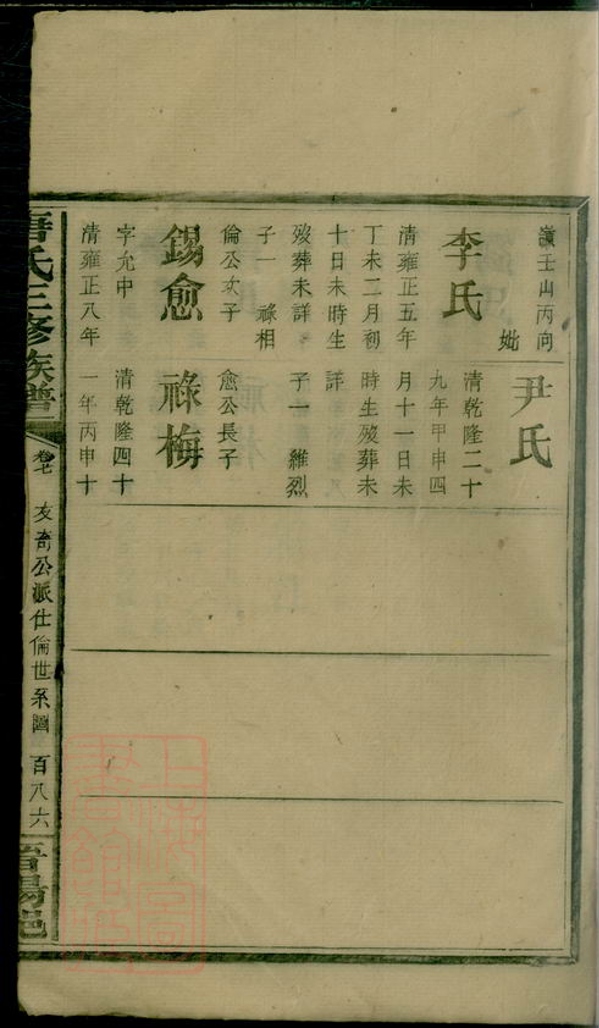 嶺壬山丙向
妣
李氏
清雍正五年
丁未二月初
十日未時生
歿葬未詳
子一 祿相
倫公次子
錫愈
字允中
清雍正八年
尹氏
清乾隆二十
九年甲申四
月十一日未
時生歿葬未
詳
子一 維烈
愈公長子
祿梅
清乾隆四十
一年丙申十
唐氏三修族譜
卷七
友奇公派仕倫世系圖
百八六
晉陽邑
上海圖
書館藏